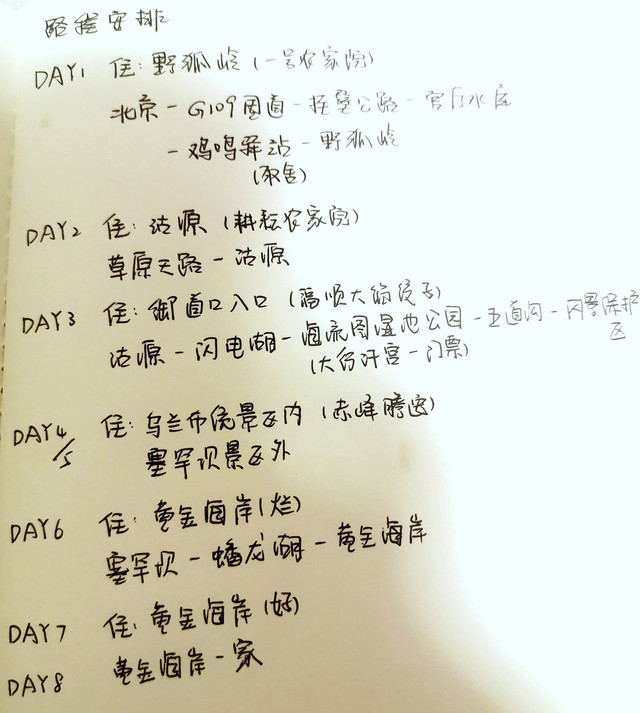 路线安排
DAY1 住:野狐岭(一号农家院)
北京-G109国道-挂壁公路-官厅水库
-鸡鸣驿站-野狐岭
(取舍)
DAY2 住:沽源(耕耘农家院)
草原天路-沽源
DAY3 住:御道口入口(福顺大院)
沽源-闪电湖-囫囵图湿地公园-五道沟-保护
区
(大汗行宫-门票)
DAY4/5 住:乌兰布统景区内(赤峰腾逸)
塞罕坝景区外
DAY6 住:黄金海岸(烂)
塞罕坝-蟠龙湖-黄金海岸
DAY7 住:黄金海岸(好)
DAY8 黄金海岸-家